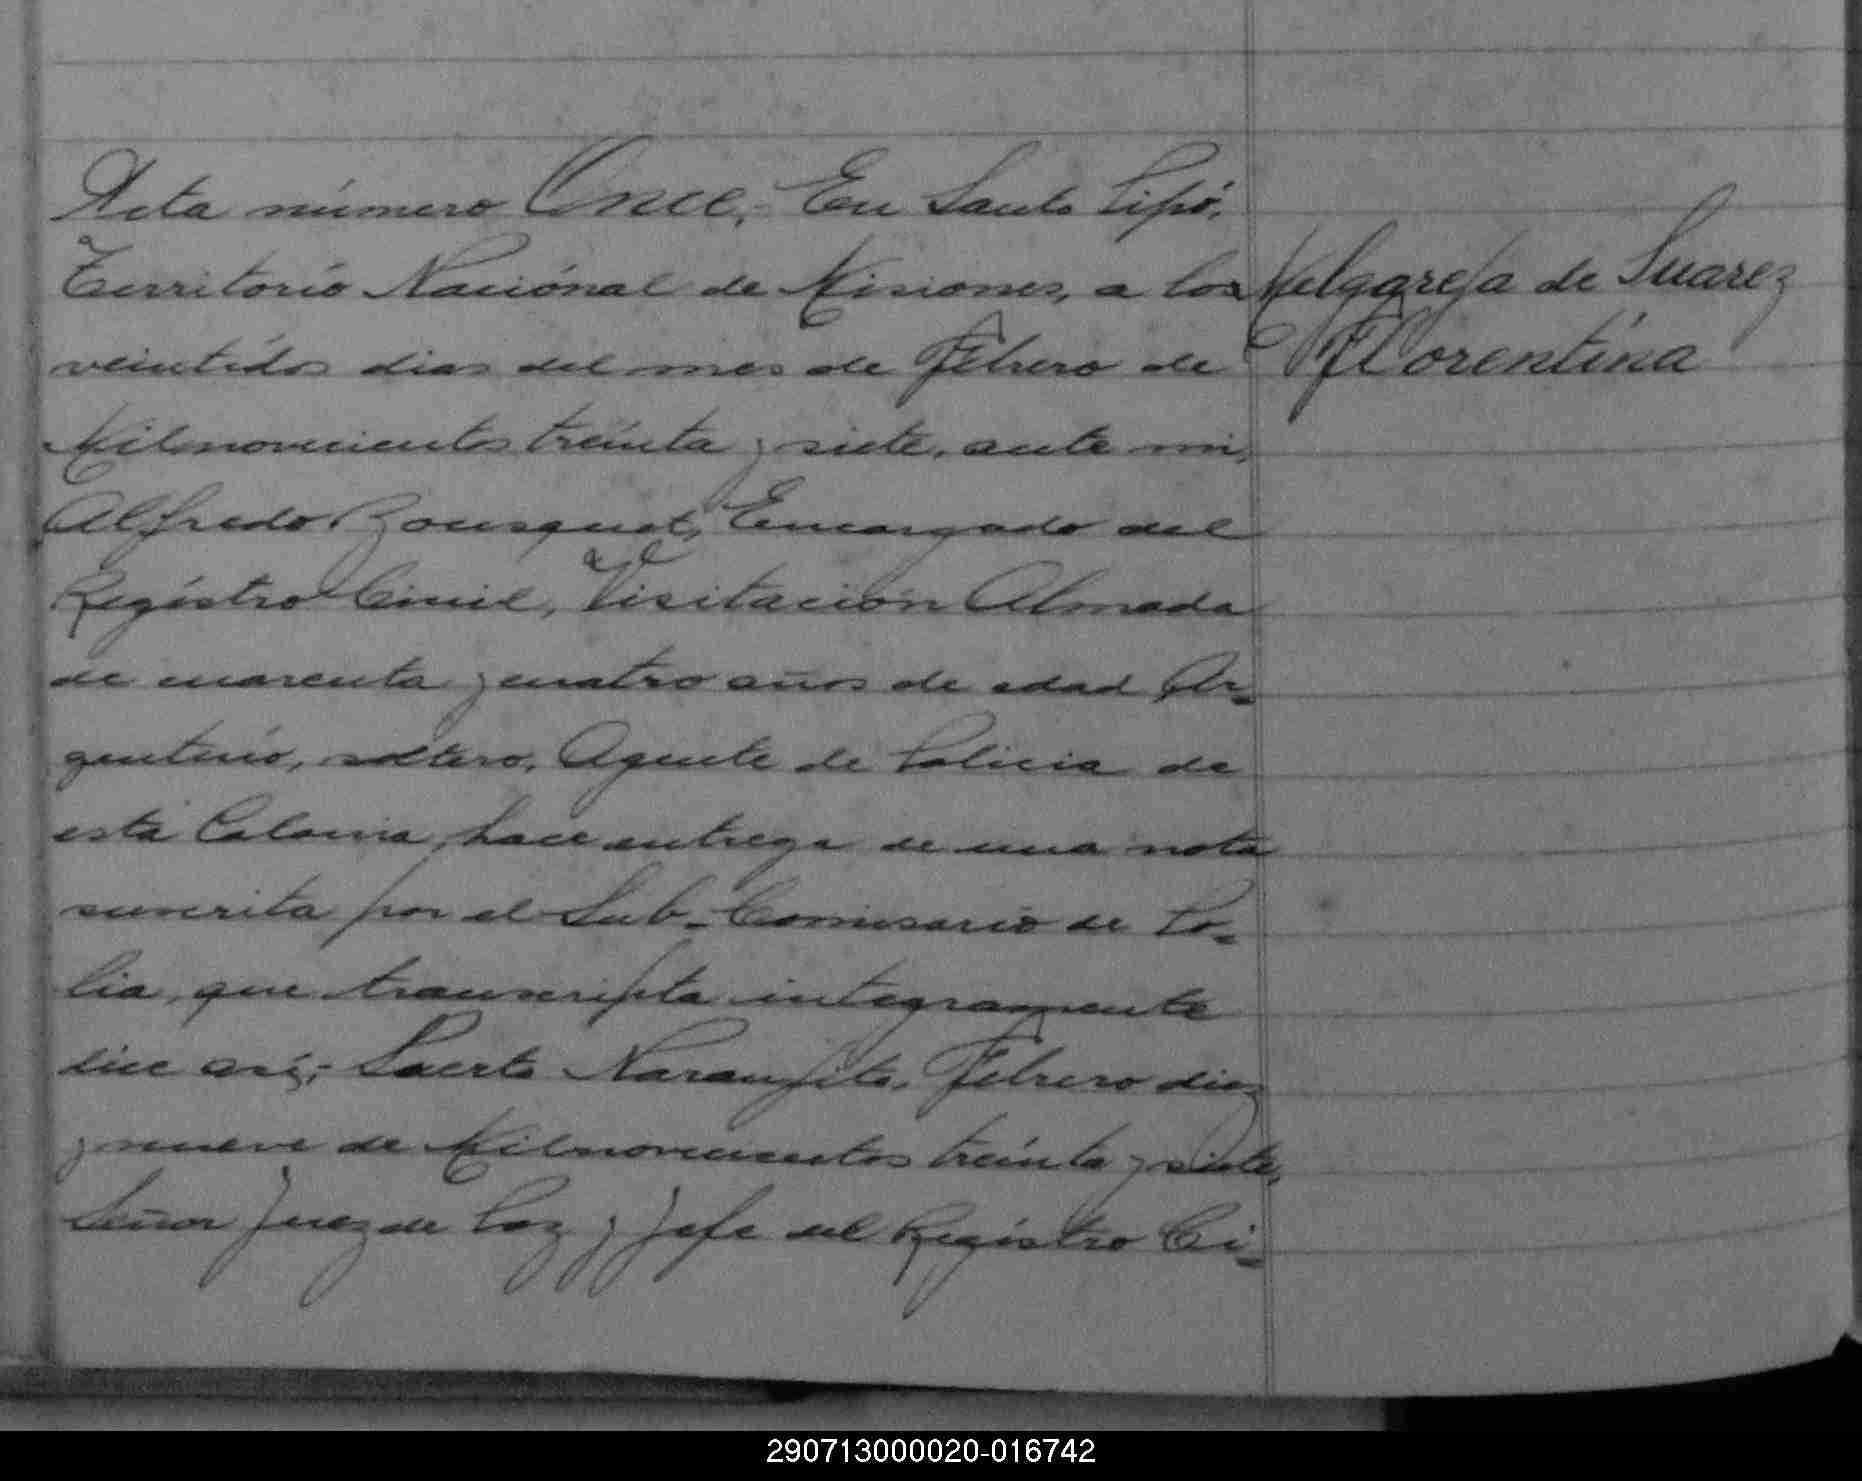 Acta número Once,- En Santo Pipó,
Territorio Naciónal de Misiones, a los
veintidos dias del mes de Febrero de
Milnovecientos treinta y siete, ante mi,
Alfredo Bousquet, Encargado del
Registro Civil, Visitación Almada
de cuarenta y cuatro años de edad Ar=
gentino, soltero, Agente de Policia de
esta Colonia, hace entrega de una nota
suscrita por el Sub-Comisario de Po=
lia, que transcripta integramente
dice así;- Puerto Naranjito, Febrero diez
y nueve de Milnovecientos treinta y siete,
Señor Juez de Paz y Jefe del Registro Ci=
Melgareja de Suarez
Florentina
290713000020-016742